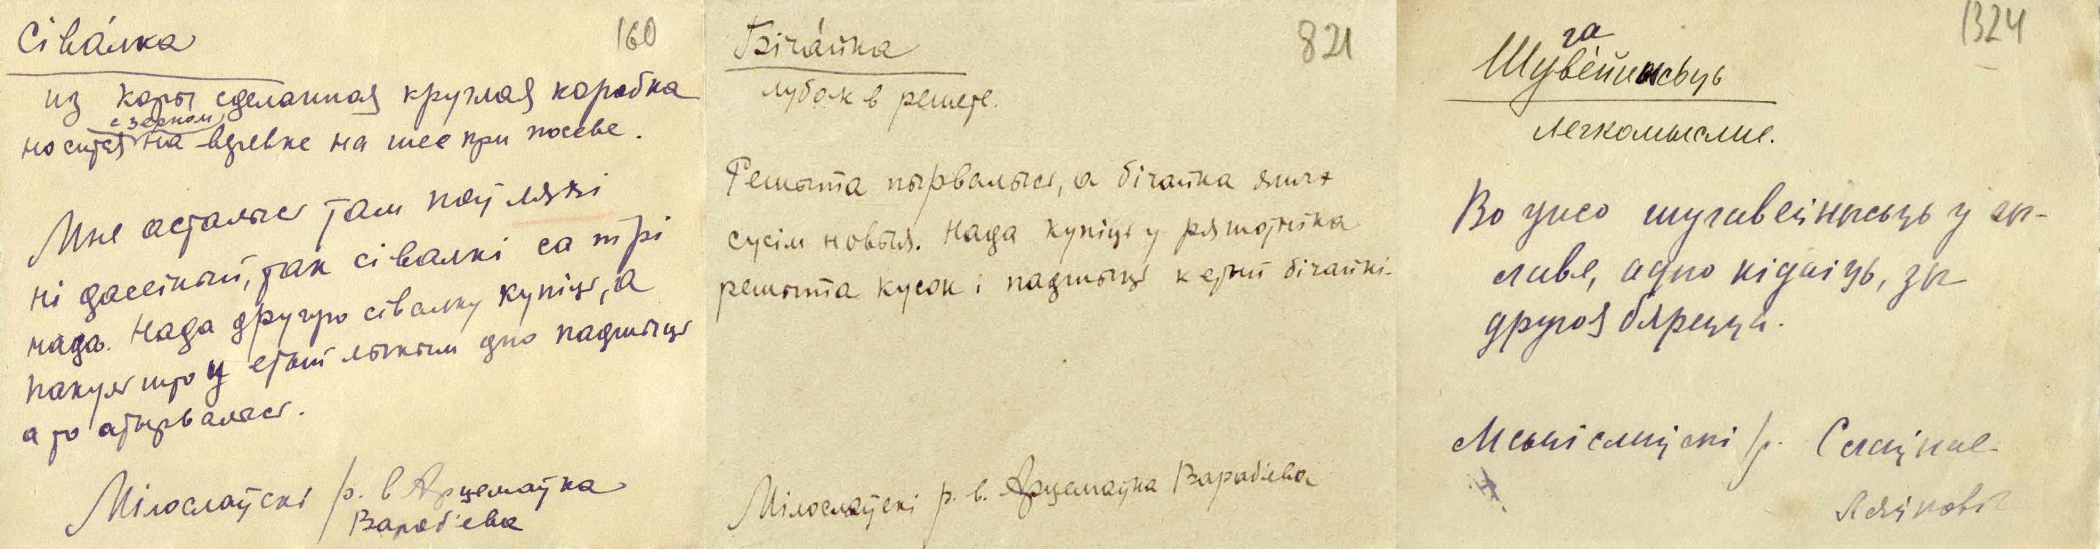 Сіва́лка
160
из коры сделанная круглая коробка
с зерном,
носится на верёвке на шее при посеве.
Мне асталыся там паў ляхі
ні дасеіный, так сівалкі са трі
нада. Нада другую сівалку купіць, а
пакуль што у етый лыкым дно падшыць
а то атырвалась.
Мілослаўскі р. в Арцемаўка
Вараб'ева
Бiча́йка
821
лубок в решете.
Решыта пырвалысь, а бічайка яшчэ
сусім новыя. Нада купіць у ряшотніка
решыта кусок і падшыць к етый бічайкі.
Мілослаўскі р. в. Арцемаўка Вараб'ева
1324
га
Шуве́йнысьць
легкомыслие.
Во ўжо шугавейнысьць у
адно кідаіць, за
другоя бярецца.
Мсьціслаўскі р.